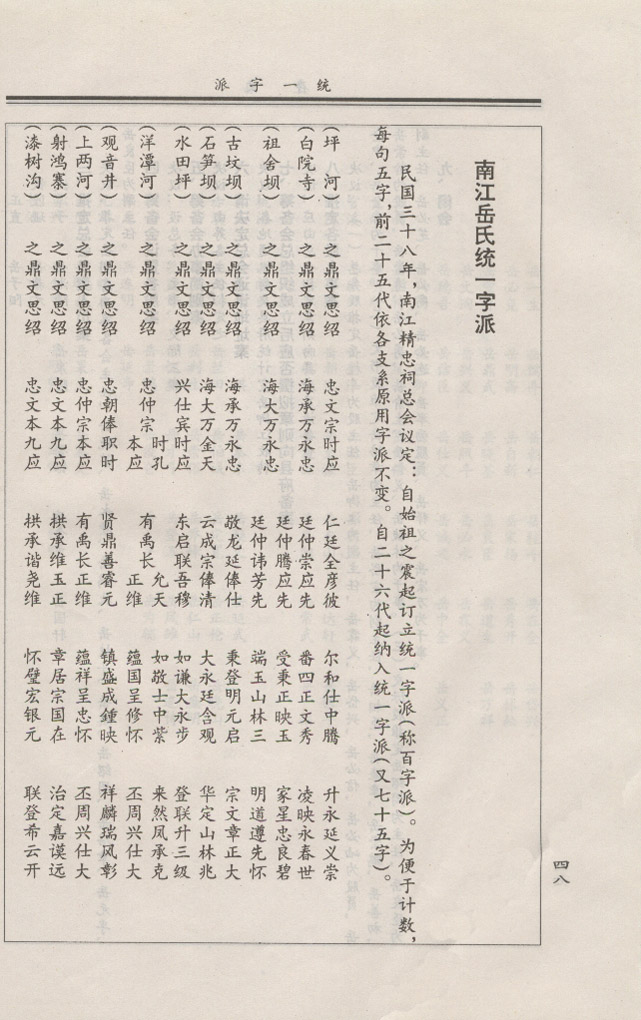 统一字派
南江岳氏统一字派
民国三十八年,南江精忠祠总会议定:自始祖之震起订立统一字派(称百字派)。为便于计数,
每句五字,前二十五代依各支系原用字派不变。自二十六代起纳入统一字派(又七十五字)。
(坪 河) 之鼎文思绍 忠文宗时应 仁廷全彦彼 尔和仕中腾 升永延义崇
(白院寺) 之鼎文思绍 海承万永忠 廷仲崇应先 番四正文秀 凌映永春世
廷仲腾应先 受秉正映玉 家星忠良碧
(祖舍坝) 之鼎文思绍 海大万永忠
廷仲讳芳先 端玉山林三 明道遵先怀
(古坟坝) 之鼎文思绍 海承万永忠 敬龙延俸仕 秉登明元启 宗文章正大
(石笋坝) 之鼎文思绍 海大万金天 云成宗俸清 大永廷含观 华定山林兆
(水田坪) 之鼎文思绍 兴仕宾时应 东启联吾穆 如谦大永步 登联升三级
时孔 允天 如敬士中紫 来然凤承克
(洋潭河) 之鼎文思绍 忠仲宗 有禹长
本应 正维 蕴国呈修怀 丕周兴仕大
(观音井) 之鼎文思绍 忠朝俸职时 贤鼎善睿元 镇盛成鍾映 祥麟瑞风彰
(上两河) 之鼎文思绍 忠仲宗本应 有禹长正维 蕴祥呈忠怀 丕周兴仕大
(射鸿寨) 之鼎文思绍 忠文本九应 拱承维玉正 章居宗国在 治定嘉谟远
(漆树沟) 之鼎文思绍 忠文本九应 拱承谐尧维 怀璧宏银元 联登希云开
四八